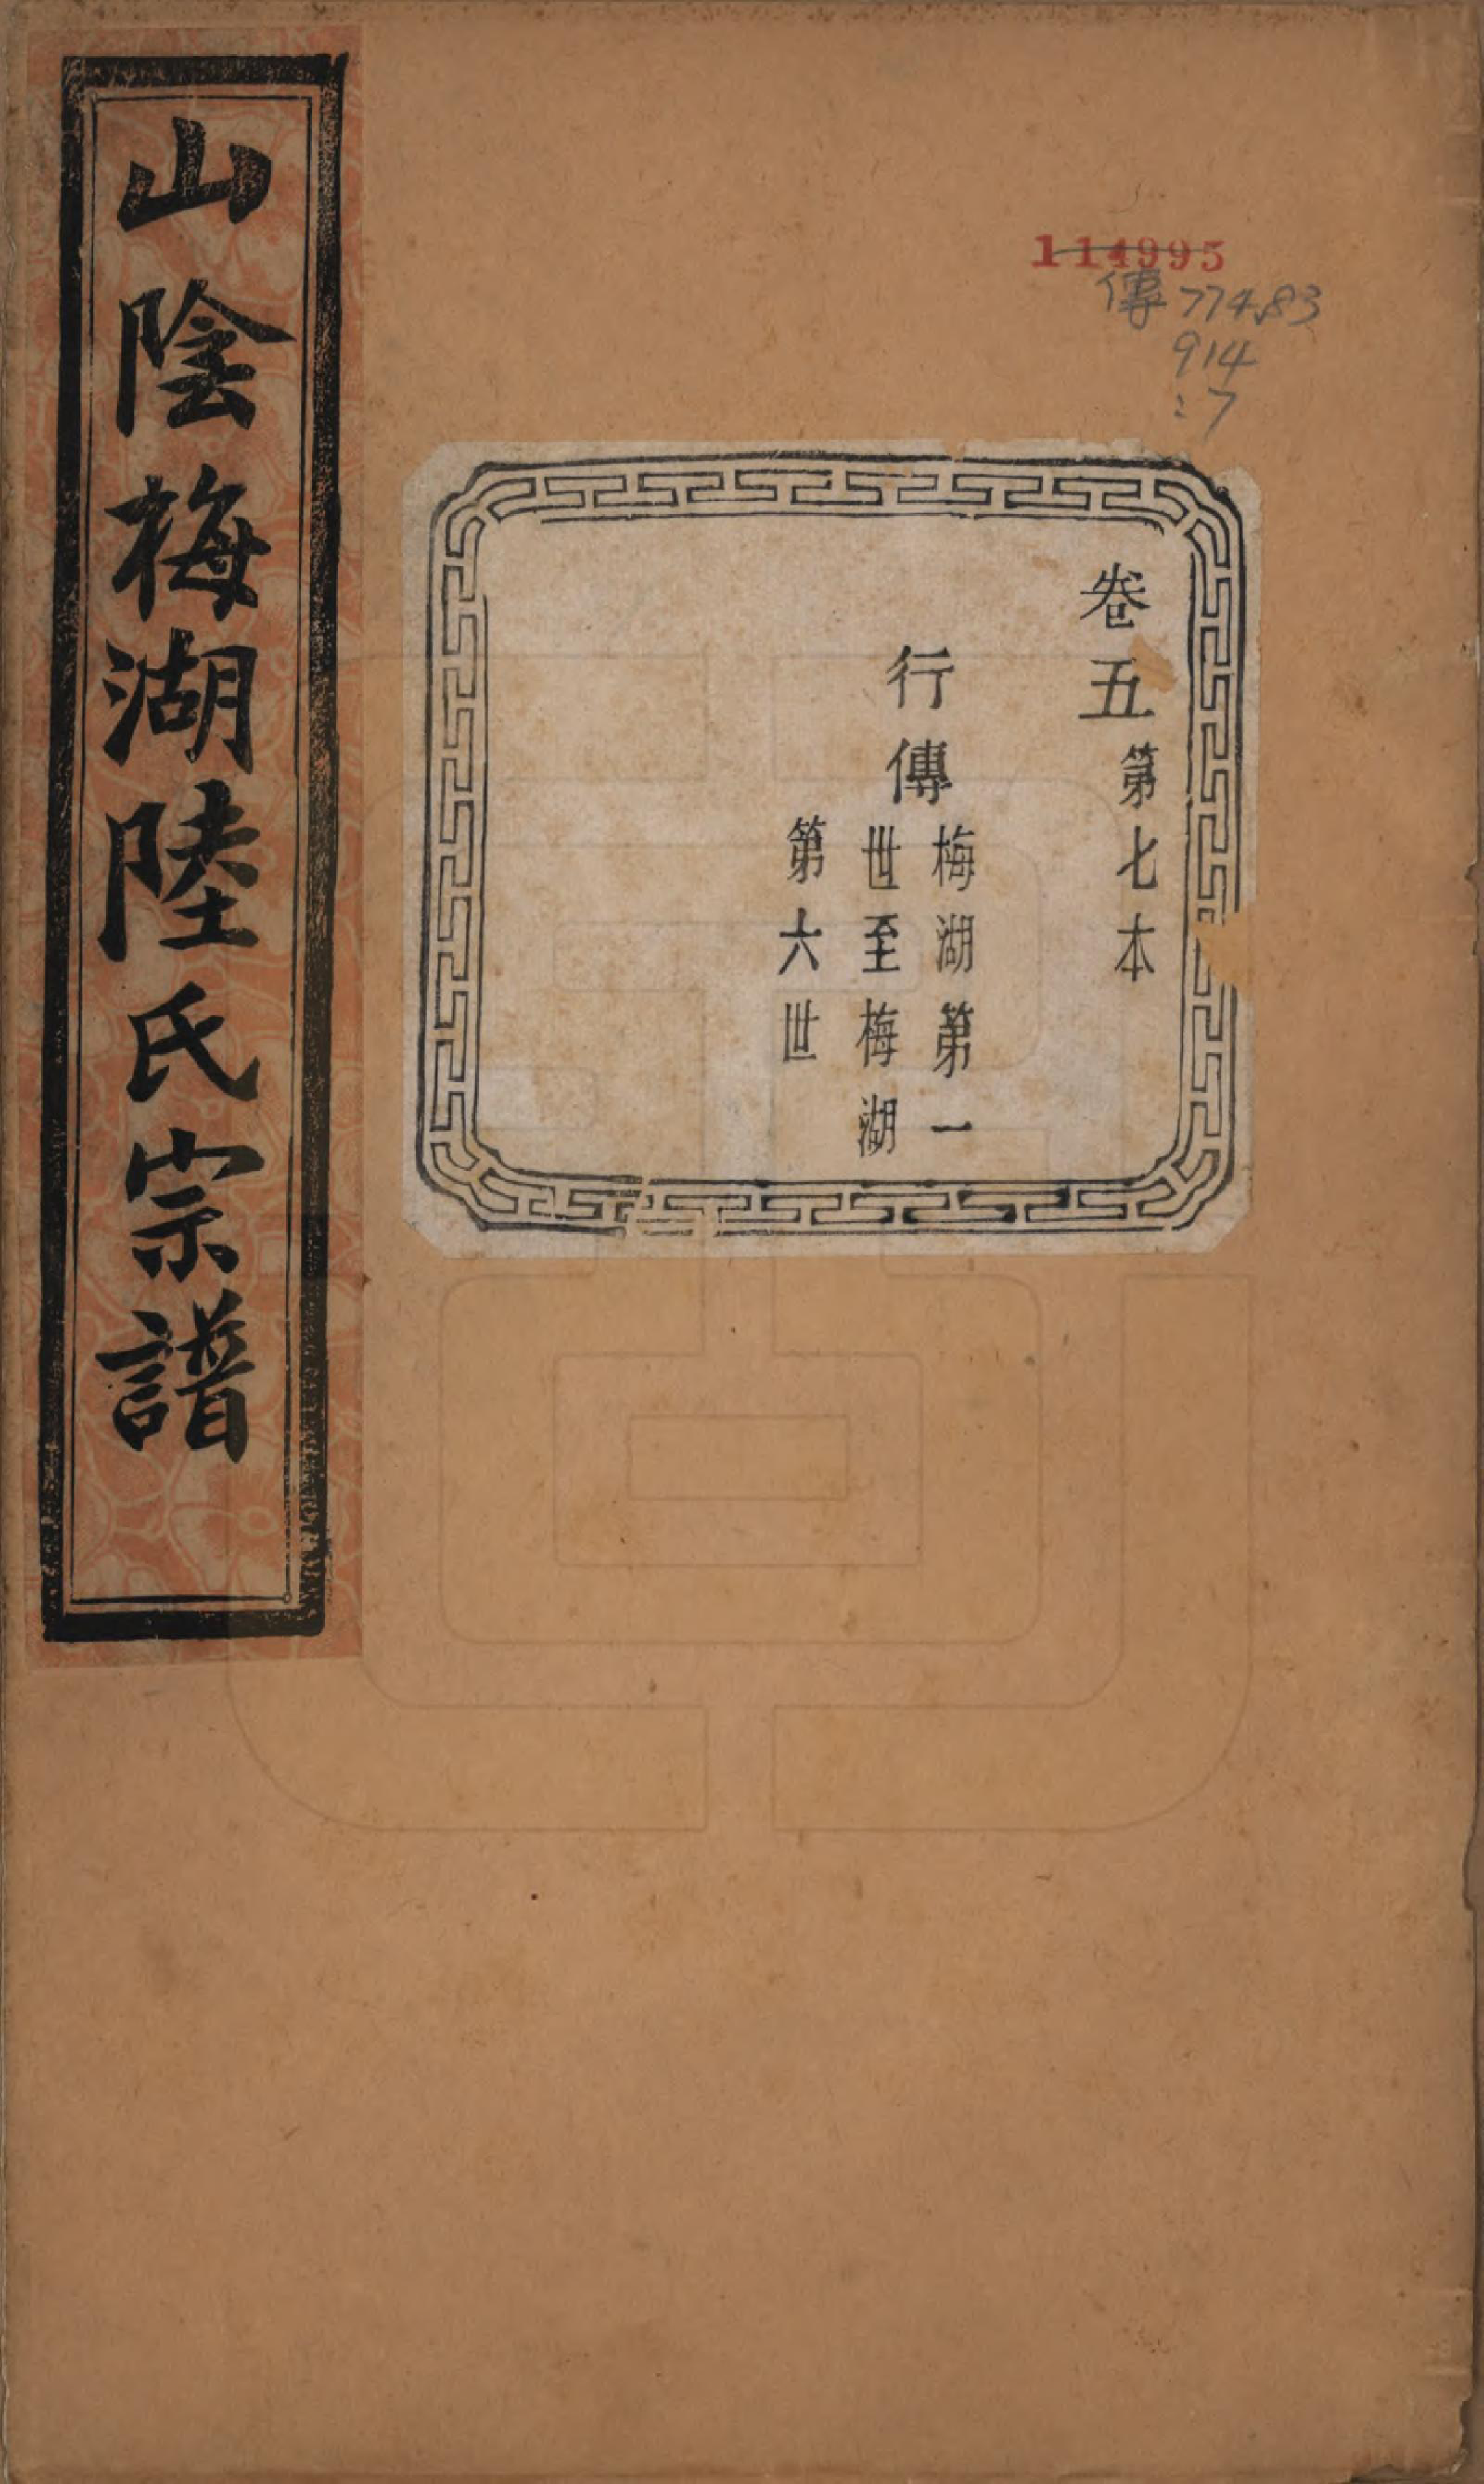 山陰梅湖陸氏宗譜
114995
傳 774.83
914
:7
卷五 第七本
行傳 梅湖第一
世至梅湖
第六世